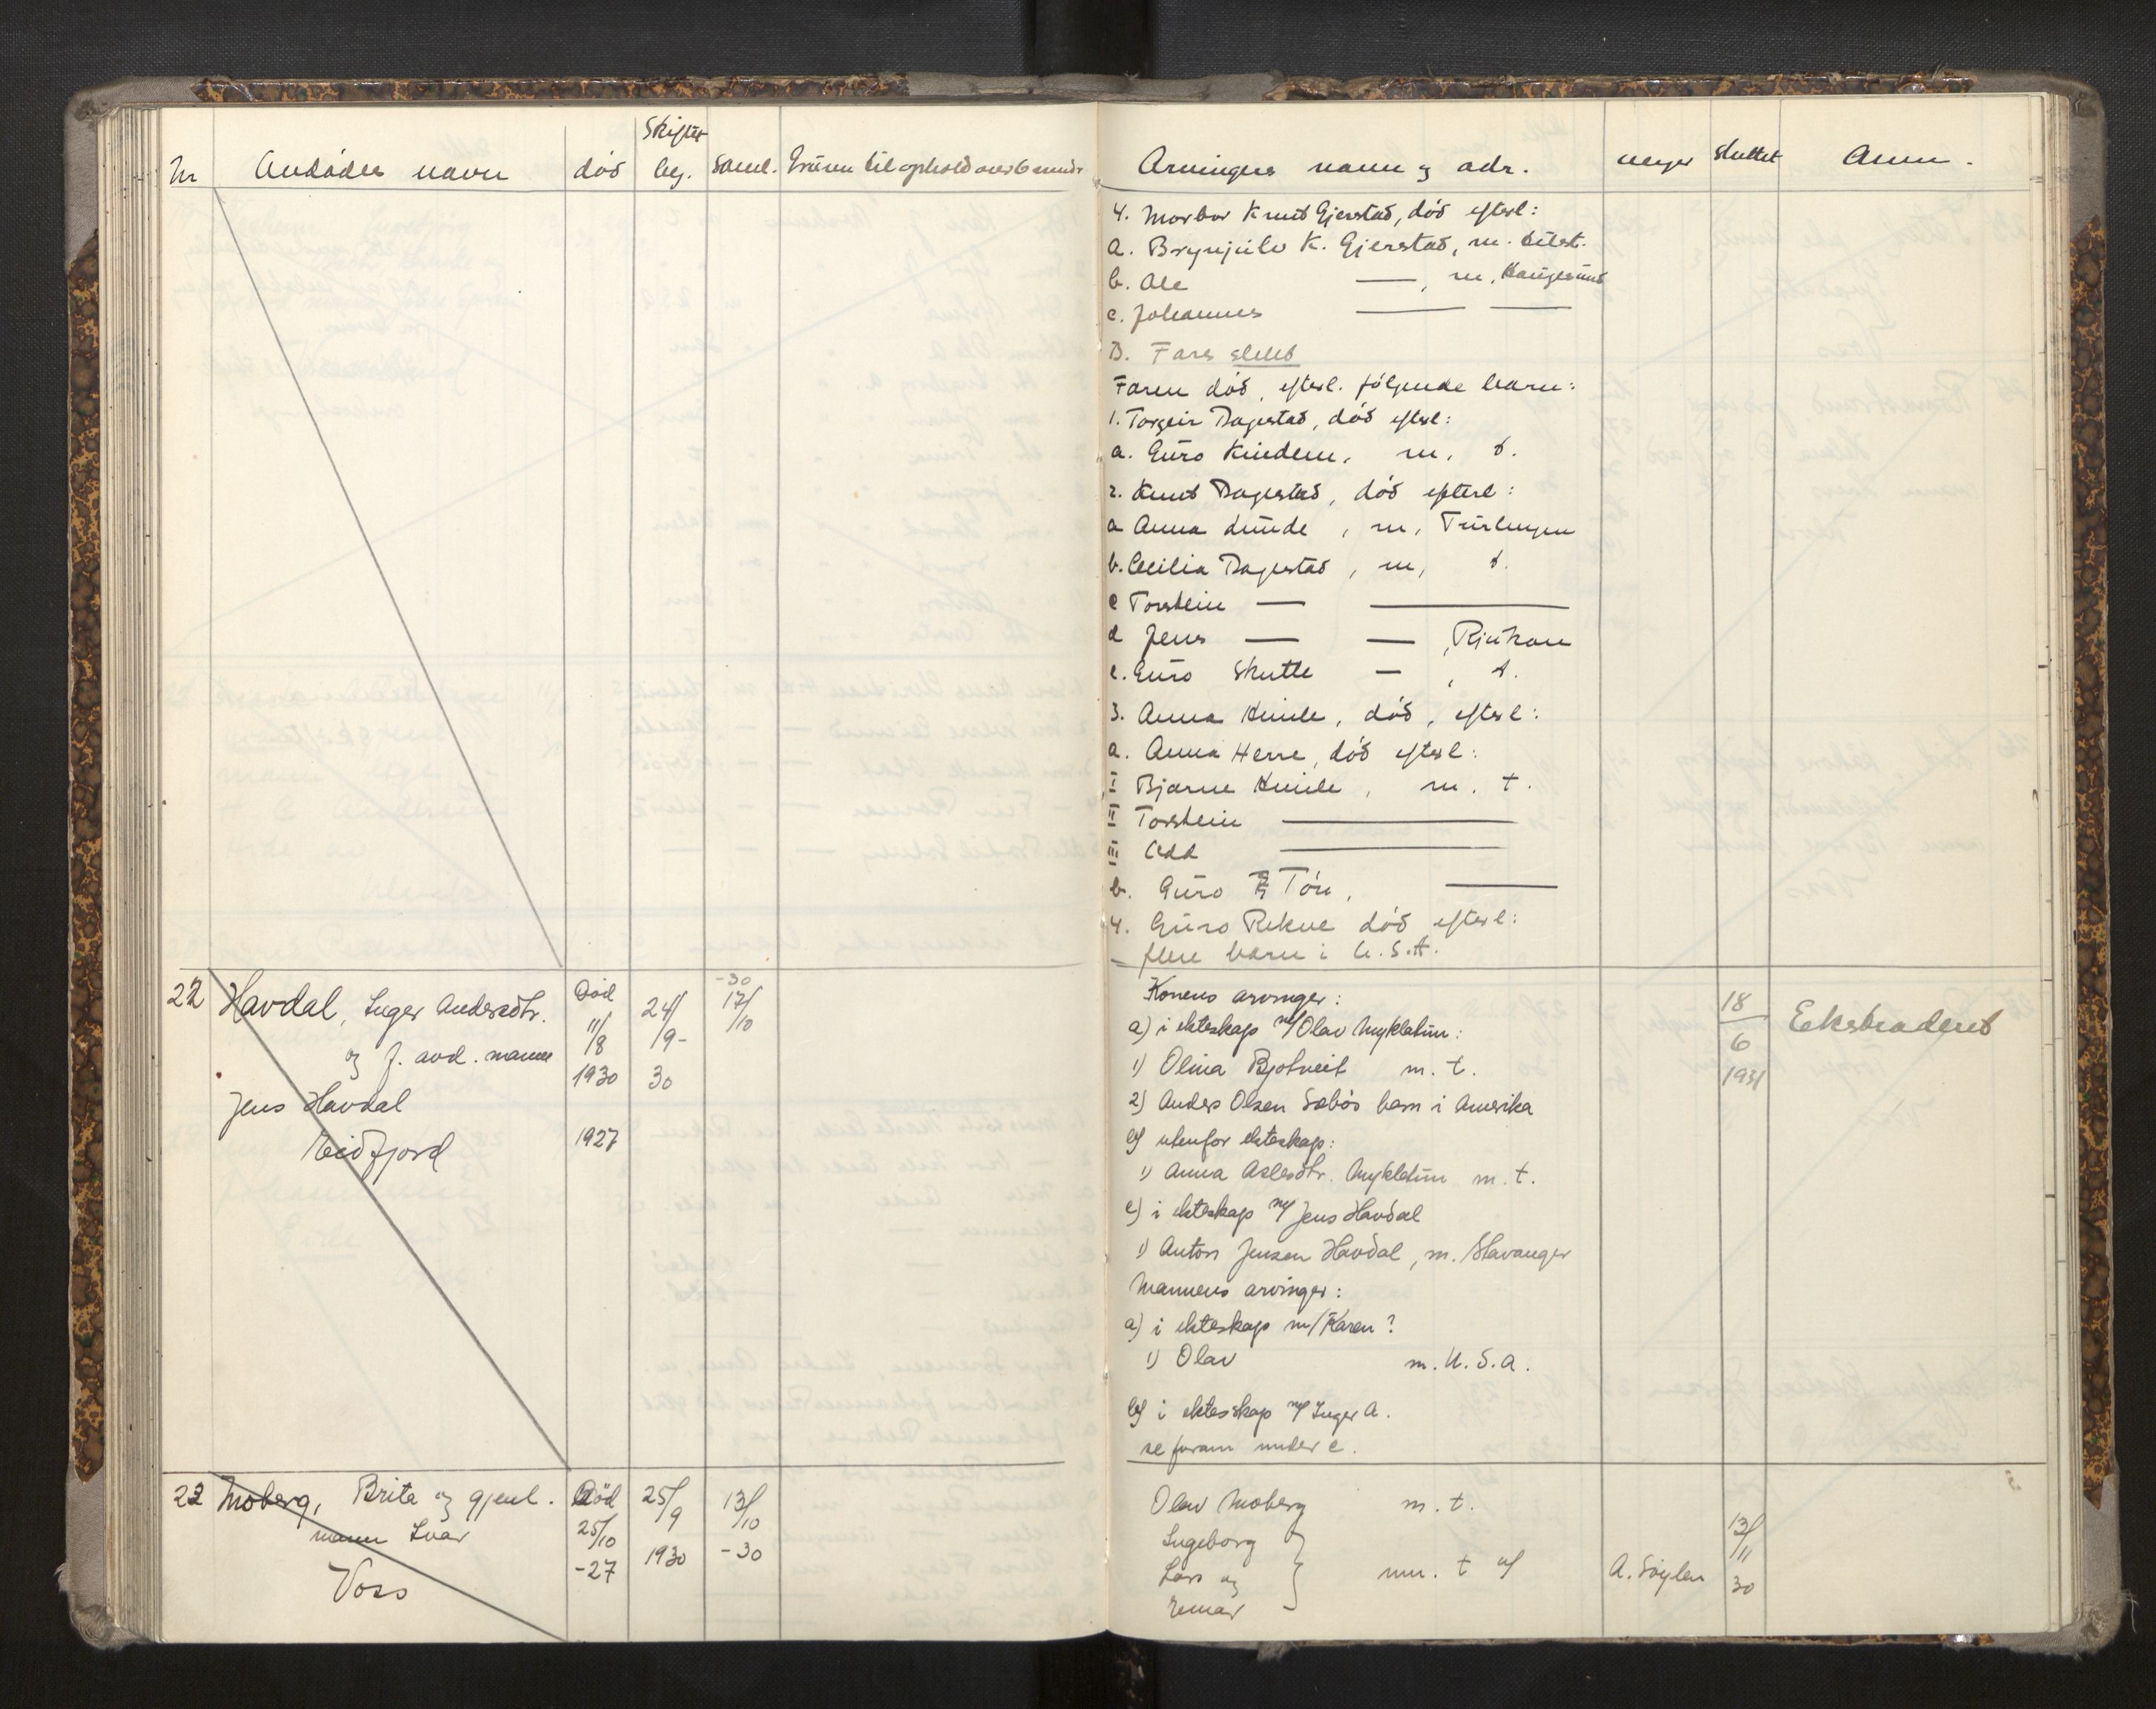 Nr Avdødes navn død Skifter beg. saml. Grunn til ophold over 6 mndr
22 Havdal, Inger Andersdtr.
og f. avd. mann
Jens Havdal
Eidfjord
Død
11/8
1930
1927
24/
19-
30
-30
17/
10
23 Moberg, Brita og gjenl.
mann Ivar
Voss
Død
25/10
-27
25/9
1930
13/10
-30
Arvingers navn og adr. verger sluttet Anm.
4. Morbror Knut Gjerstad, død efterl:
a. Brynjulv K. Gjerstad, m.
b. Ole —, m, Haugesund
c. Johannes — —
B. Fars slekt
Faren død, efterl. følgende barn:
1. Torgeir Dagestad, død efterl:
a. Guro Kindem, m, t.
2. Knut Dagestad, død efterl:
a Anna Lunde, m,
b. Cecilia Dagestad, m, t.
c Torstein — —
d Jens — —, Rjukan
e. Guro Skutle —, t.
3. Anna Hunle, død, efterl:
a. Anna Herre, død efterl:
I Bjarne Hunle, m. t.
II Torstein —
III Odd —
b. Guro Tøn, —
4. Guro Rekve død efterl:
flere barn i U.S.A.
Konens arvinger:
a) i ekteskap m/Olav Mykletun:
1) Olina Bjotveit m. t.
2) Anders Olsen Sæbø bem i Amerika
b) utenfor ekteskap:
1) Anna Aslesdtr. Mykletun m. t.
c) i ekteskap m/ Jens Havdal
1) Anton Jensen Havdal, m. Stavanger
Mannens arvinger:
a) i ekteskap m/Karen?
1) Olav m. U.S.A.
b) i ekteskap m/Inger A.
se foran under c.
18
6
1931
Ekstradert
Olav Moberg m. t.
Ingeborg
Lars og
Einar
um. t v/
A. Søyland
13/
11
30